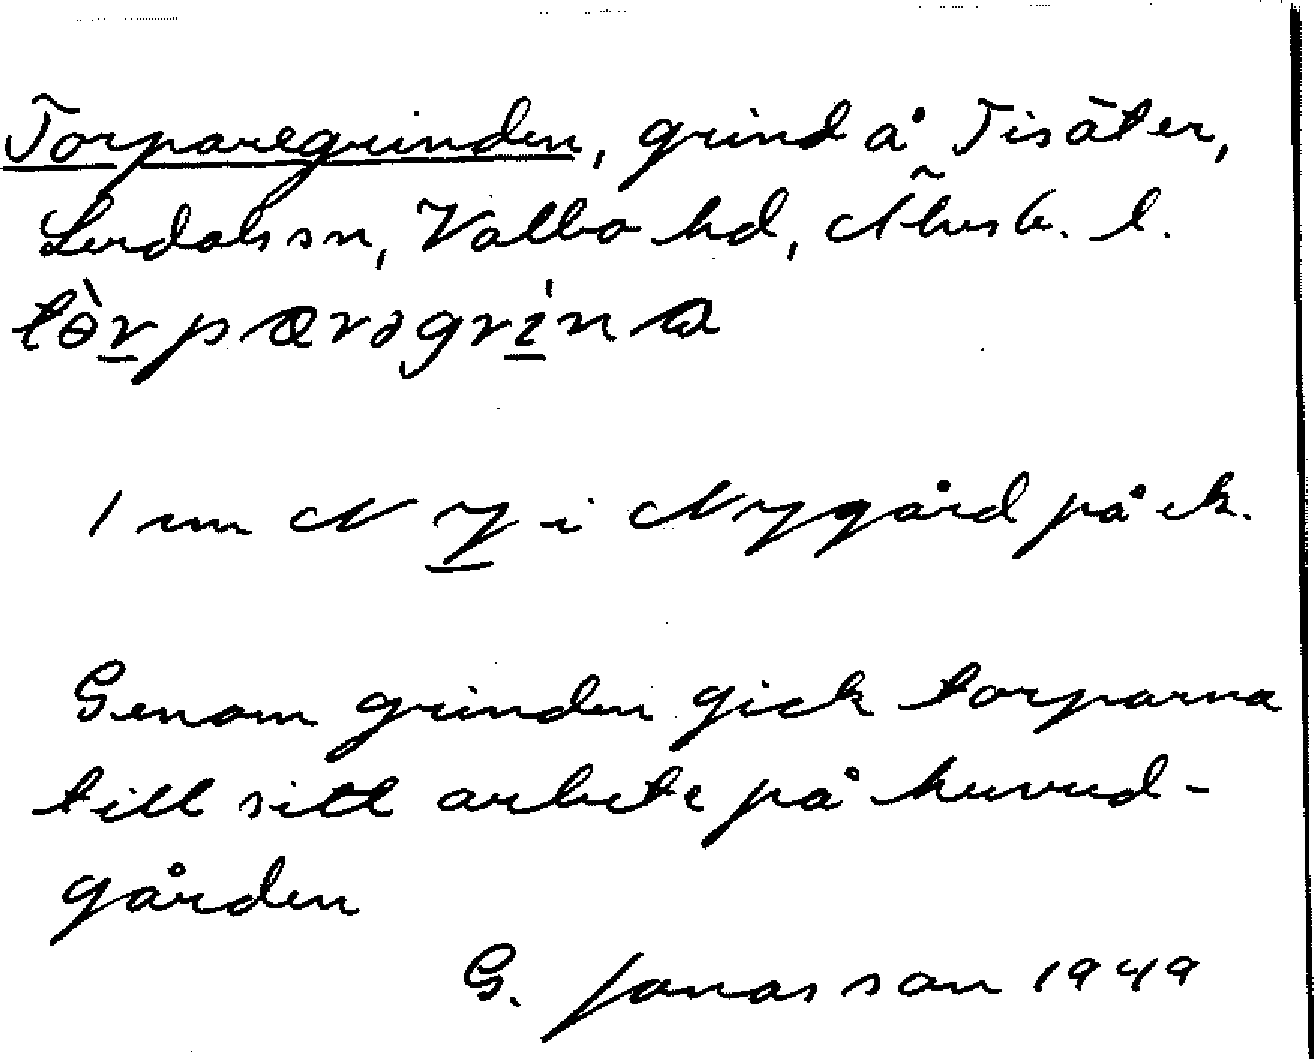 Torparegrinden, grind å Tisäter,
Lerdals sn, Valbo hd, Älvsb. l.
tòrparəgrína
1 mm N y i Nygård på ek.
Genom grinden gick torparna
till sitt arbete på huvud-
gården
G. Jonasson 1949